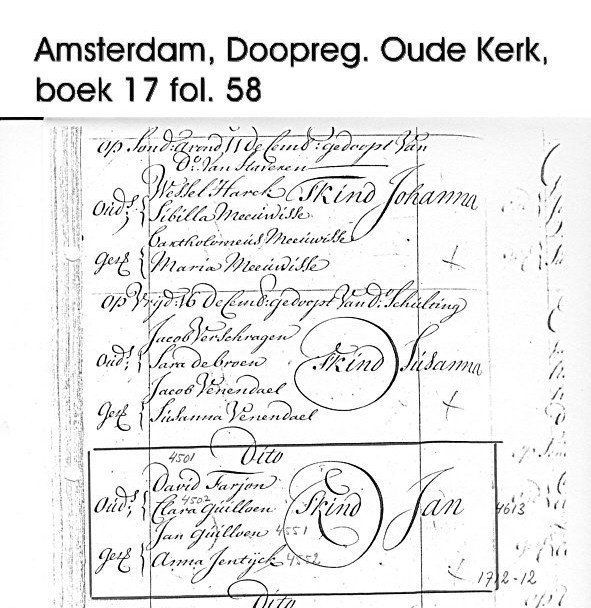 Amsterdam, Doopreg. Oude Kerk,
boek 17 fol. 58
op Sond: avond 11 decemb: gedoopt van
Do: van Staveren
Wessel Harck
Oud:s { Sibilla Meeuwisse 't kind Johanna
Bartholomeus Meeuwisse
get: { Maria Meeuwisse
op Vrijd: 16 decemb: gedoopt van Do: Schulting
Jacob Verschragen
Oud:s { Sara de broen 't kind Susanna
Jacob Venendael
get: { Susanna Venendael
Dito
4501
David Farjon
4502
Oud:s { Clara Guilloen 't kind Jan 4613
Jan Guilloen 4551
get: { Anna Jentijck 4552
1712-12
Dito